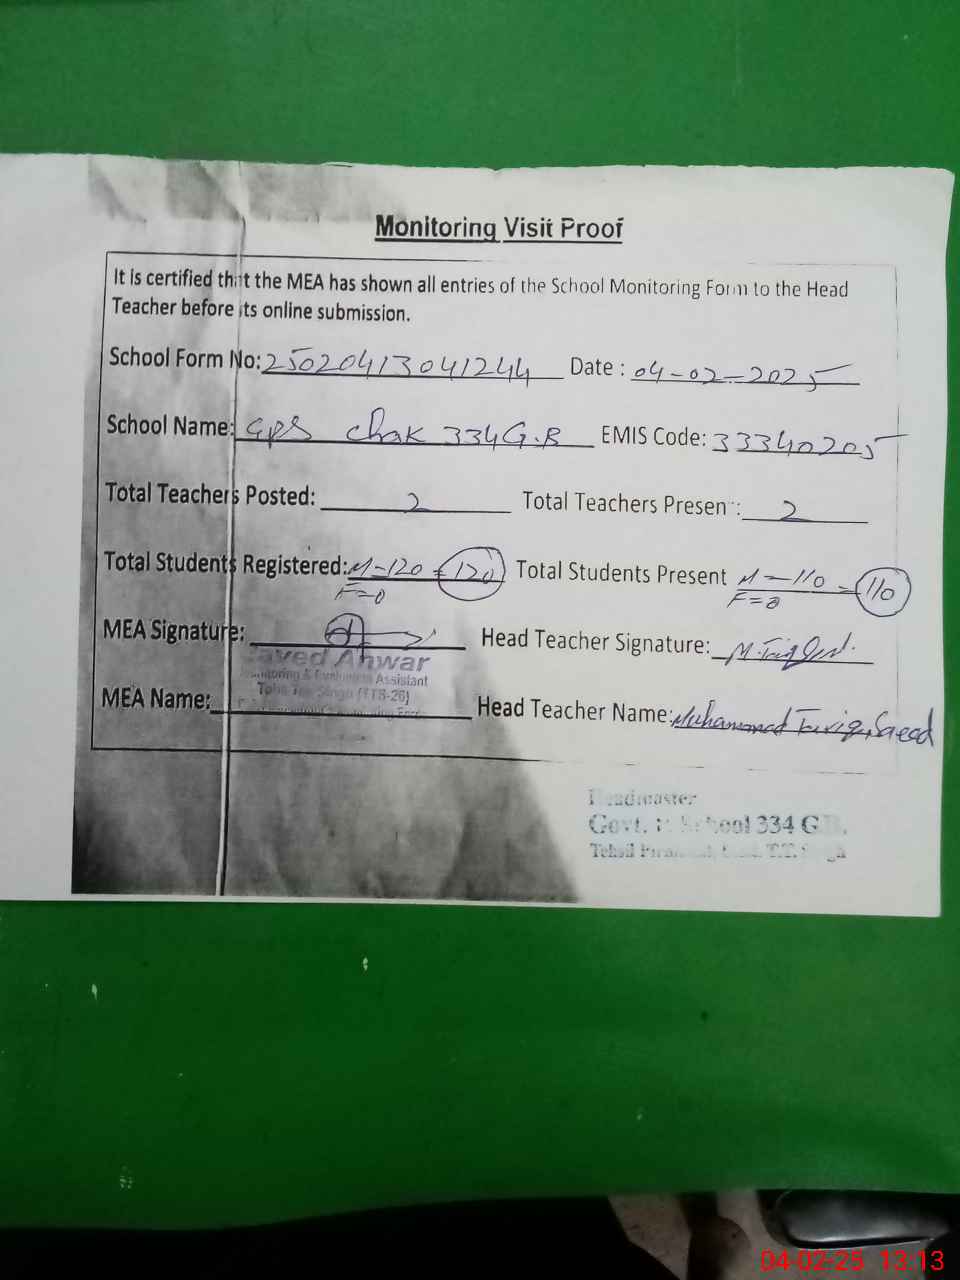 Monitoring Visit Proof
It is certified that the MEA has shown all entries of the School Monitoring Form to the Head
Teacher before its online submission.
School Form No: 25020413041244 Date : 04-02-2025
School Name: GPS Chak 334 G.B EMIS Code: 33340205
Total Teachers Posted: 2 Total Teachers Present: 2
Total Students Registered: M-120 = 120 Total Students Present M-110 = 110
F=0 F=0
MEA Signature: Head Teacher Signature:
Anwar
Monitoring & Evaluation Assistant
Toba Tek Singh (TTS-26)
MEA Name: Head Teacher Name: Muhammad Tariq Saeed
Headmaster
Govt. School 334 G.B.
Tehsil T.T. Singh
04-02-25 13:13